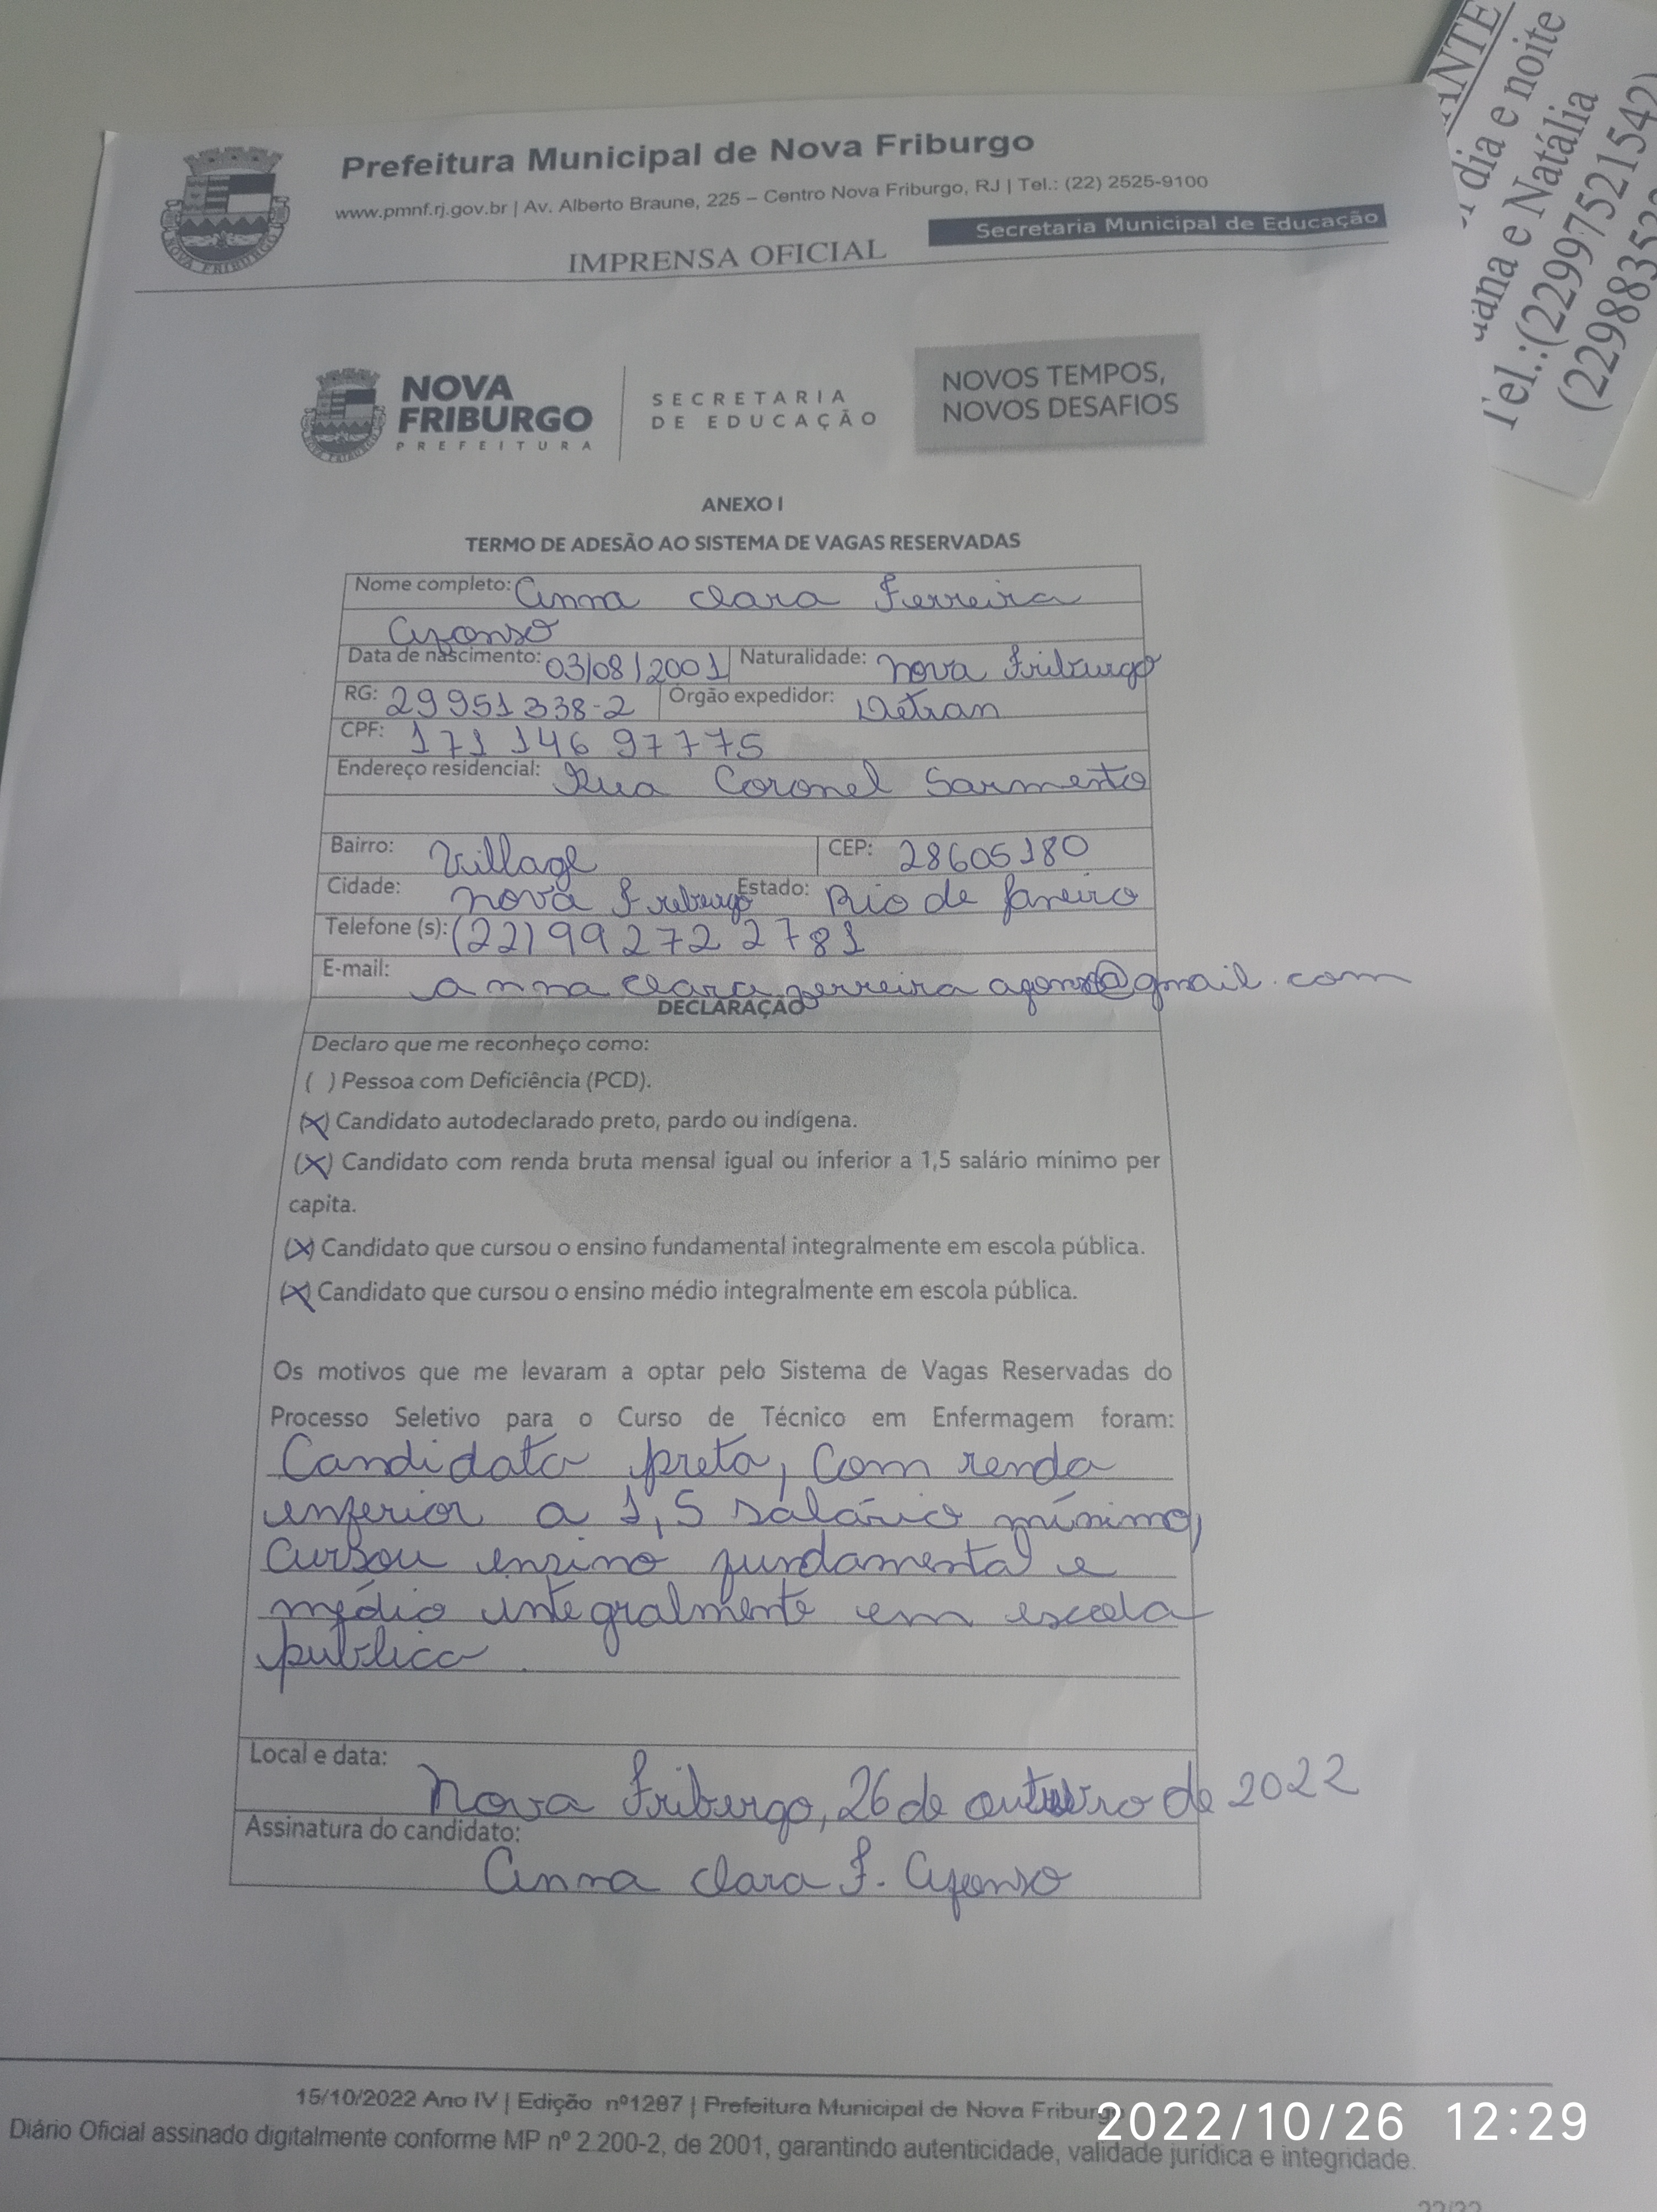 Prefeitura Municipal de Nova Friburgo
www.pmnf.rj.gov.br | Av. Alberto Braune, 225 – Centro Nova Friburgo, RJ | Tel.: (22) 2525-9100
Secretaria Municipal de Educação
IMPRENSA OFICIAL
NOVA FRIBURGO
NOVA
FRIBURGO
PREFEITURA
SECRETARIA
DE EDUCAÇÃO
NOVOS TEMPOS,
NOVOS DESAFIOS
ANEXO I
TERMO DE ADESÃO AO SISTEMA DE VAGAS RESERVADAS
Nome completo: Anna Clara Ferreira
Afonso
Data de nascimento: 03/08/2001 Naturalidade: Nova Friburgo
RG: 29951338-2 Órgão expedidor: Detran
CPF: 171 146 97775
Endereço residencial: Rua Coronel Sarmento
Bairro: Village CEP: 28605180
Cidade: Nova Friburgo Estado: Rio de Janeiro
Telefone (s): (22) 99272 2781
E-mail: anna clara ferreira afonso@gmail.com
DECLARAÇÃO
Declaro que me reconheço como:
( ) Pessoa com Deficiência (PCD).
(X) Candidato autodeclarado preto, pardo ou indígena.
(X) Candidato com renda bruta mensal igual ou inferior a 1,5 salário mínimo per
capita.
(X) Candidato que cursou o ensino fundamental integralmente em escola pública.
(X) Candidato que cursou o ensino médio integralmente em escola pública.
Os motivos que me levaram a optar pelo Sistema de Vagas Reservadas do
Processo Seletivo para o Curso de Técnico em Enfermagem foram:
Candidata preta, com renda
inferior a 1,5 salário mínimo,
cursou ensino fundamental e
médio integralmente em escola
publica.
Local e data: Nova Friburgo, 26 de outubro de 2022
Assinatura do candidato:
Anna Clara F. Afonso
15/10/2022 Ano IV | Edição nº1287 | Prefeitura Municipal de Nova Friburgo
Diário Oficial assinado digitalmente conforme MP nº 2.200-2, de 2001, garantindo autenticidade, validade jurídica e integridade.
2022/10/26 12:29
dia e noite
e Natália
Tel.:(22997521542)